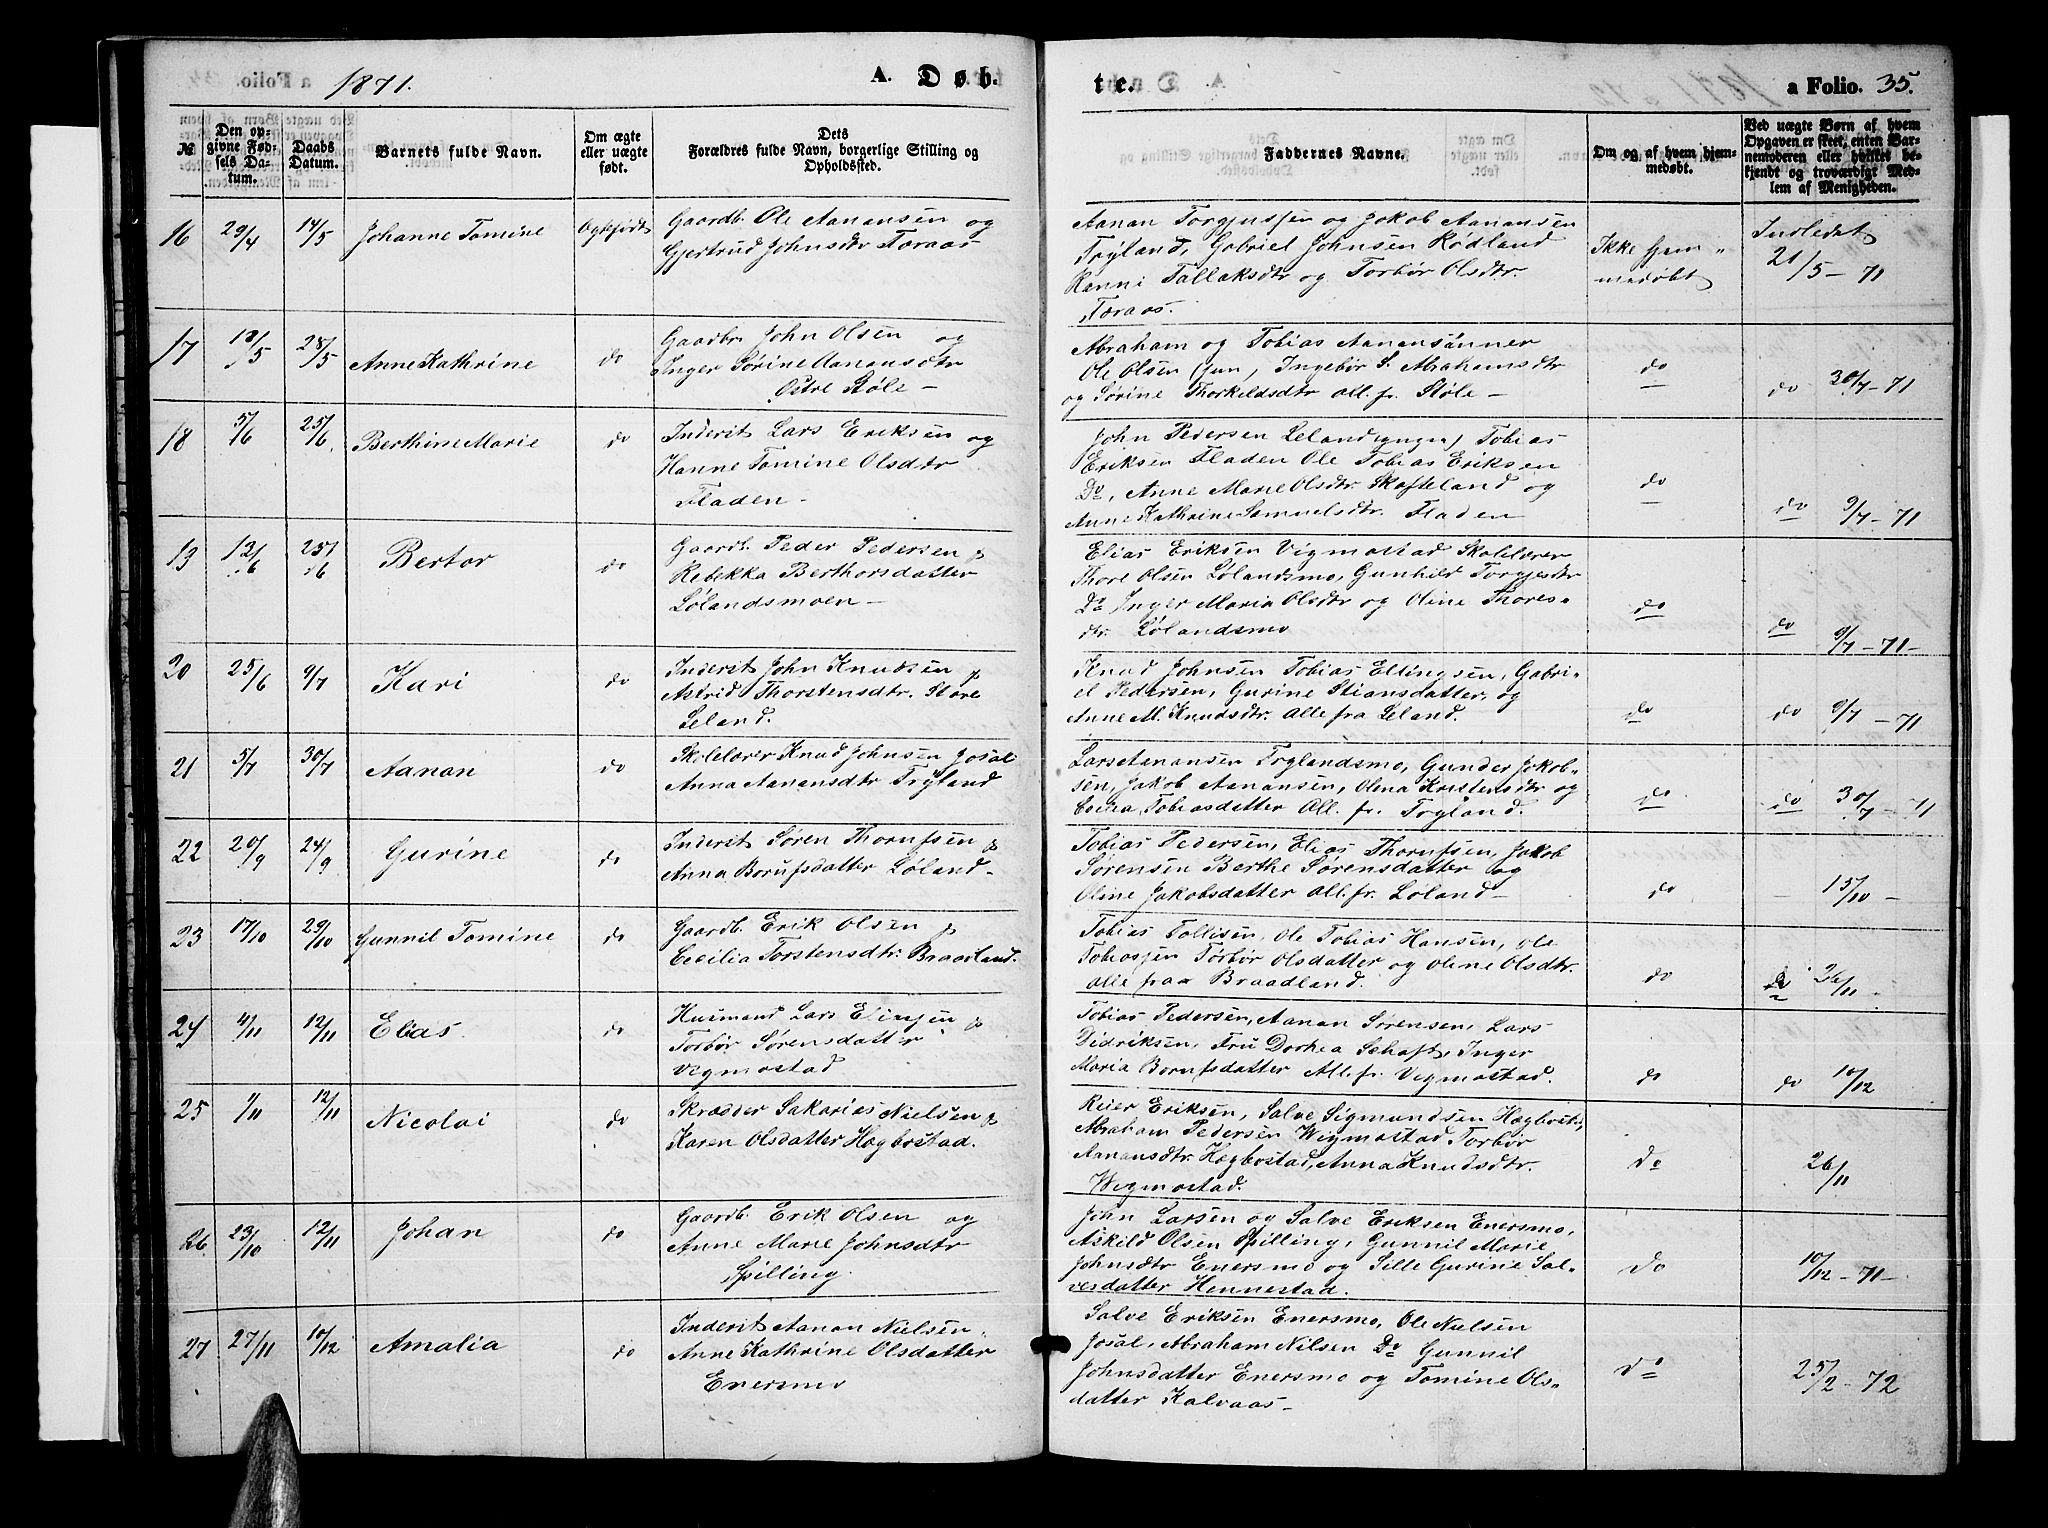 1871.
A. Døb-
te.
a Folio. 35.
№
Den opgivne Fødsels Datum.
Daabs Datum.
Barnets fulde Navn.
Om ægte eller uægte født.
Dets Forældres fulde Navn, borgerlige Stilling og Opholdssted.
Faddernes Navne.
Om og af hvem hjemmedøbt.
Ved uægte Børn af hvem Opgaven er skeet, enten Barnemoderen eller hvilket bekjendt og troværdigt Medlem af Menigheden.
16 29/4 14/5 Johanne Tomine Ægtefødt
Gaardb. Ole Aanansen og
Gjertrud Johnsdtr Foraas
Aanan Torgjussen og Jakob Aanansen
Trÿland, Gabriel Johnsen Rødland
Ranni Tallaksdtr og Torbør Olsdtr.
Foraas.
Ikke hjem-
medøbt
Indledet
21/5 - 71
17 18/5 28/5 Anne Kathrine do
Gaardbr John Olsen og
Inger Sørine Aanansdtr
Østre Støle -
Abraham og Tobias Aanansønner
Ole Olsen (jun, Ingebør S. Abrahamsdtr
og Sørine Thorkildsdtr all. fr. Støle -
do
do 30/7 - 71
18 5/6 25/6 Berthine Marie do
Inderst Lars Eriksen og
Hanne Tomine Olsdtr
Fladen -
John Pedersen Leland Tobias
Eriksen Fladen Ole Tobias Eriksen
Do, Anne Marie Olsdtr. Skofteland og
Anne Kathrine Samuelsdtr. Fladen
do
do 9/7 - 71
19 12/6 25/6 Bertor do
Gaardb. Peder Pedersen &
Rebekka Berthorsdatter
Lølandsmoen -
Elias Eriksen Vigmostad Skolelærer
Thore Olsen Lølandsmo, Gunhild Torgjesdtr
Do Inger Maria Olsdtr og Oline Thores-
dtr. Lølandsmo
do
do 9/7 - 71 -
20 25/6 9/7 Kari do
Inderst John Knudsen &
Astrid Thorstensdtr. Store
Leland.
Knud Johnsen Tobias Ellingsen, Gabri-
el Pedersen, Gurine Stiansdatter, og
Anne M. Knudsdtr. Alle fra Leland.
do
do 9/7 - 71
21 5/7 30/7 Aanan do
Skolelærer Knud Johnsen Josal
Anna Aanansdtr Trÿland
Lars Aanansen Trylandsmo, Gunder Jakob-
sen, Jakob Aanansen, Olena Kristensdtr og
Tobiasdatter All. fr. Trÿland.
do
do 30/7 - 71
22 20/9 24/9 Gurine do
Inderst Søren Thorufsen &
Anna Borufsdatter Løland -
Tobias Pedersen, Elias Thorufsen, Jakob
Sørensen Berthe Sørensdatter og
Oline Jakobsdatter all. fr. Løland -
do
- 15/10 -
23 17/10 29/10 Gunnil Tomine do
Gaardb. Erik Olsen &
Cecilia Torstensdtr. Braadland.
Tobias Tollisen, Ole Tobias Hansen, Ole
Tobiassen Torbør Olsdatter og Oline Olsdtr.
alle fraa Braadland.
do
do 26/11 -
24 4/11 12/11 Elias. do
Husmand Lars Elingsen &
Torbør Sørensdatter
Vigmostad
Tobias Pedersen, Aanan Sørensen, Lars
Didriksen, Fru Dorhea Schaft, Inger
Maria Borufsdatter All. fr. Vigmostad.
do
do 10/12
25 1/11 12/11 Nicolai do
Skrædder Sakarias Nielsen &
Karen Olsdatter Høgbostad.
Reier Eriksen, Salve Sigmundsen Høgbost.,
Abraham Pedersen Wigmostad Torbør
Aanansdtr. Høgbostad, Anna Knudsdtr.
Wigmostad.
do
26/11
26 23/10 12/11 Johan do
Gaardb. Erik Olsen og
Anne Marie Johnsdtr
Spilling.
John Larsen og Salve Eriksen Enersmo,
Askild Olsen Spilling, Gunnil Marie
Johnsdtr Enersmo og Sille Gurine Sal-
vesdatter Hennestad.
Do
10/12 - 71 -
27 27/11 10/12 Amalia do
Inderst Aanan Nielsen.
Anne Kathrine Olsdatter
Enersmo
Salve Eriksen Enersmo, Ole Nielsen
Josal, Abraham Nilsen Do Gunnil
Johnsdatter Enersmo og Tomine Ols-
datter Kalvaas -
Do
25/2 - 72